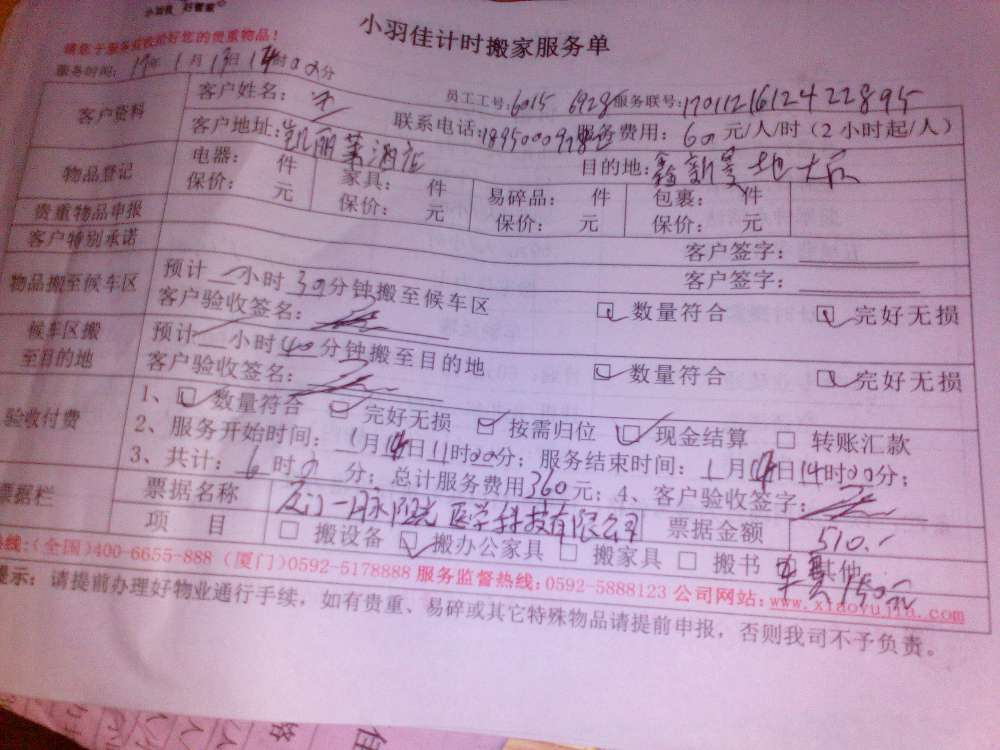 小羽佳 好管家
请您于服务验收前好您的贵重物品！
小羽佳计时搬家服务单
服务时间：17年1月13日14时00分
员工工号：6015 6928 服务联号：17011216124422895
客户资料
客户姓名：
联系电话： 服务费用：60元/人/时（2小时起/人）
客户地址：凯丽莱酒店
目的地：鑫新景地大厦
物品登记
电器： 件 家具： 件 易碎品： 件 包裹： 件
保价： 元 保价： 元 保价： 元 保价： 元
贵重物品申报
客户签字：
客户特别承诺
客户签字：
物品搬至候车区
预计 小时30分钟搬至候车区
客户验收签名： 数量符合 完好无损
候车区搬至目的地
预计 小时40分钟搬至目的地
客户验收签名： 数量符合 完好无损
验收付费
1、数量符合 完好无损 按需归位 现金结算 转账汇款
2、服务开始时间：1月14日11时00分；服务结束时间：1月14日14时00分；
3、共计：6时0分；总计服务费用360元；4、客户验收签字：
票据栏
票据名称 厦门一脉阳光医学科技有限公司 票据金额 510.-
项 目 搬设备 搬办公家具 搬家具 搬书 其他 车费150元
热线：（全国）400-6655-888（厦门）0592-5178888 服务监督热线：0592-5888123 公司网站：www.xiaoyujia.com
提示：请提前办理好物业通行手续，如有贵重、易碎或其它特殊物品请提前申报，否则我司不予负责。